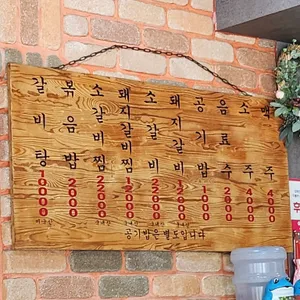 갈비탕
10000
볶음밥
2000
소갈비찜
돼지갈비찜
소갈비
돼지갈비
공기밥
1000
음료수
2000
소주
4000
맥주
4000
공기밥은 별도입니다